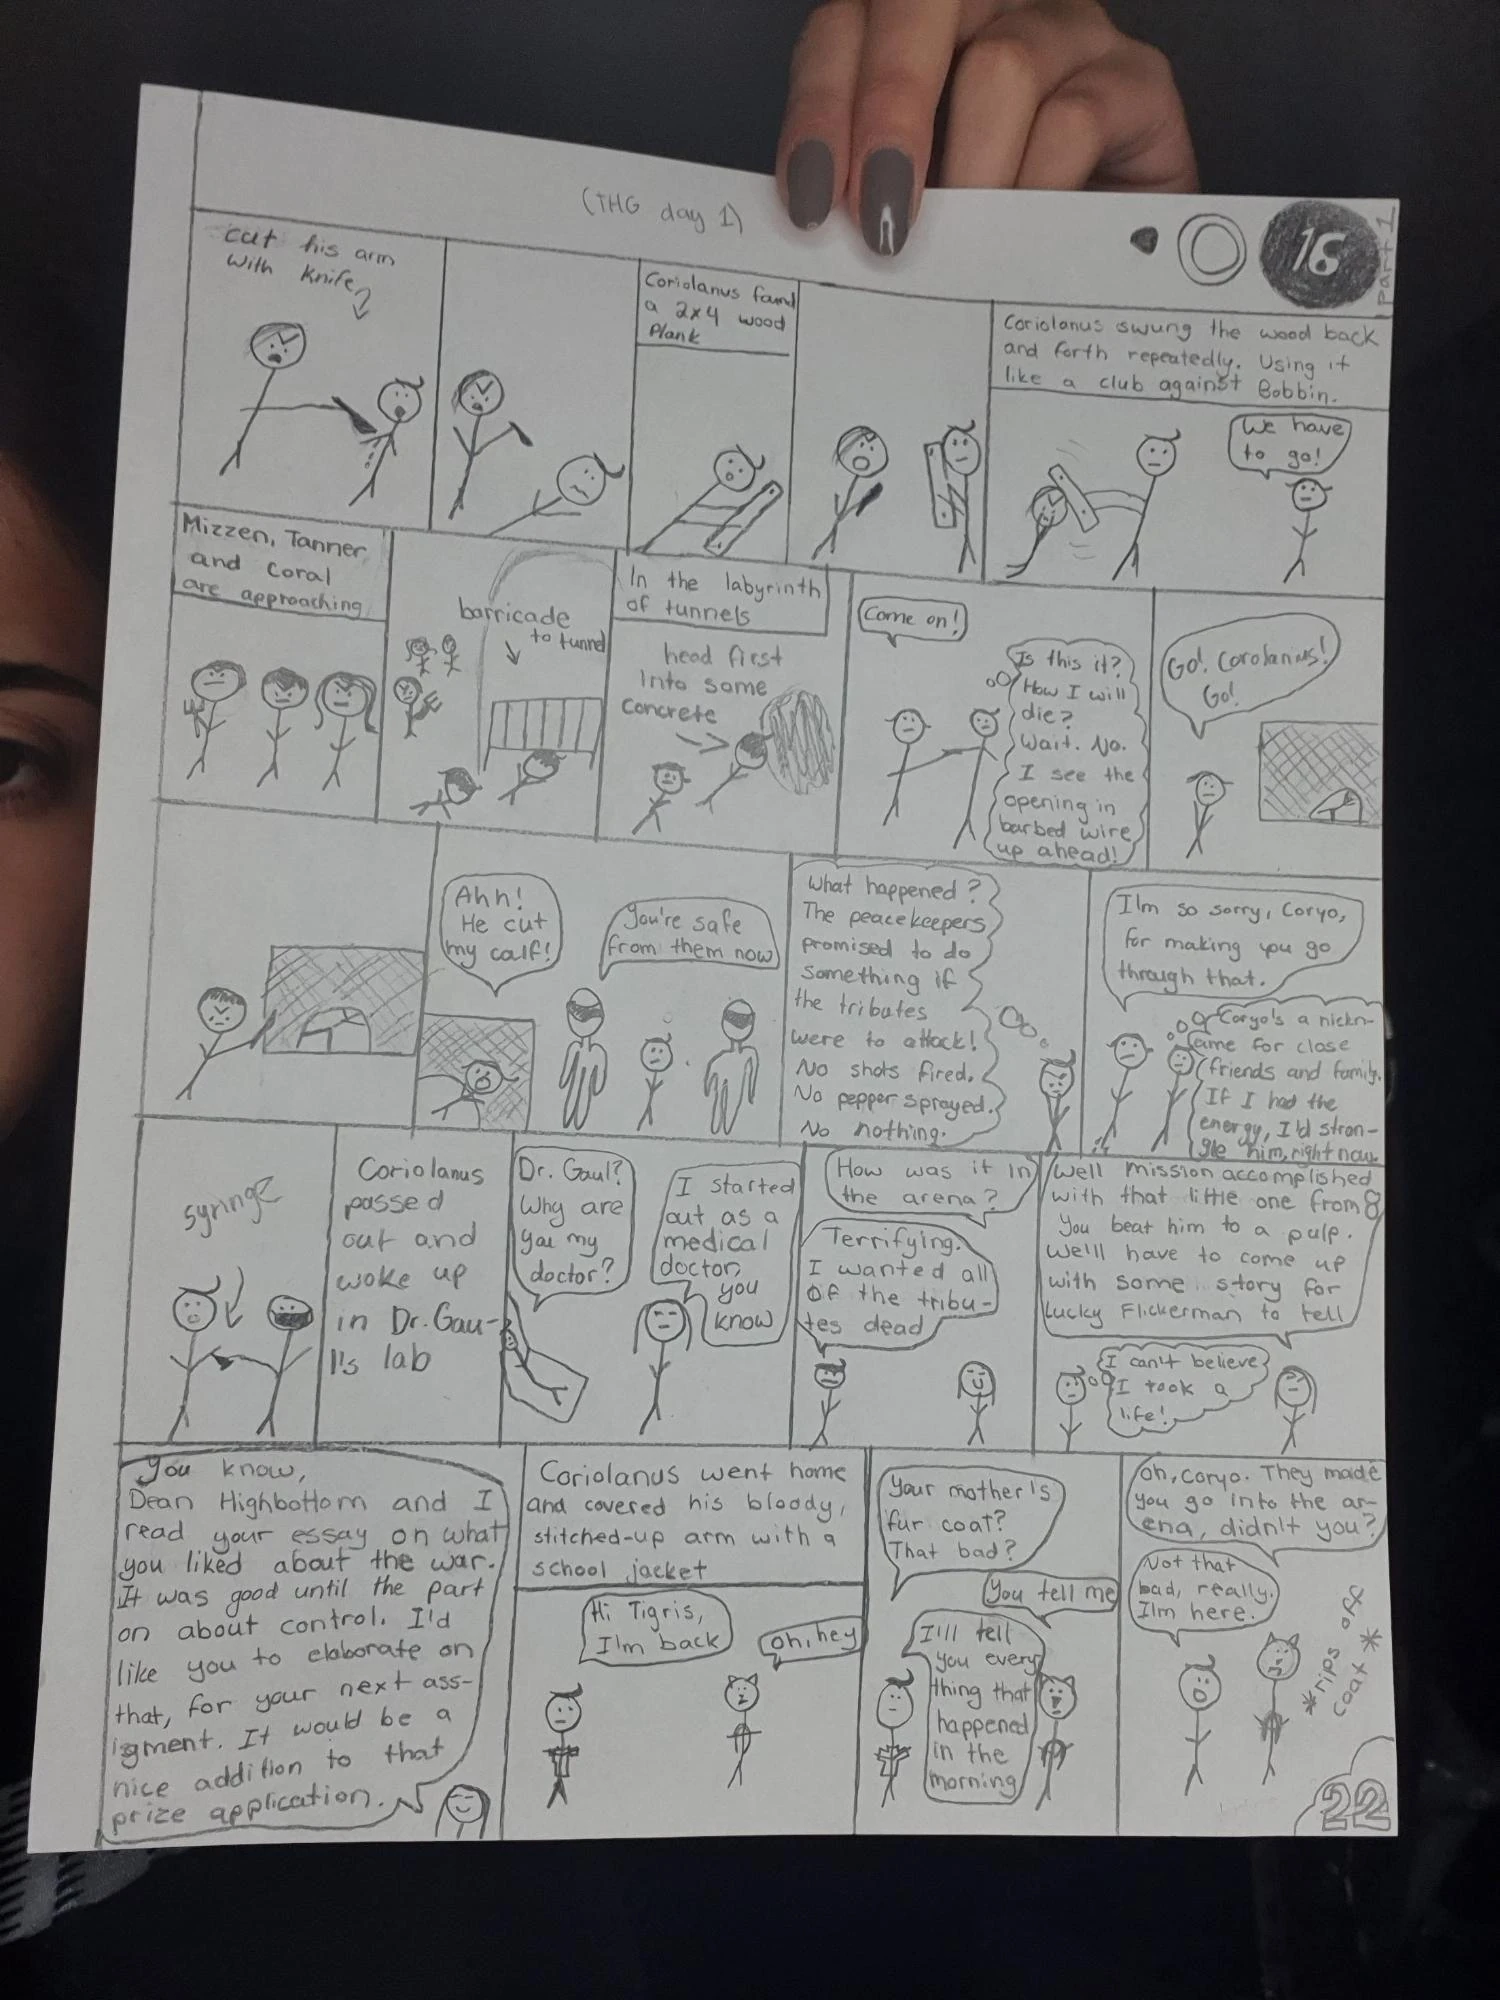 (THG day 1)
16
part 1
cut his arm
with knife
Coriolanus found
a 2x4 wood
Plank
Coriolanus swung the wood back
and forth repeatedly. Using it
like a club against Bobbin.
We have
to go!
Mizzen, Tanner
and Coral
are approaching
barricade
to tunnel
In the labyrinth
of tunnels
head first
into some
concrete
Come on!
Is this it?
How I will
die?
Wait. No.
I see the
opening in
barbed wire
up ahead!
Go! Corolanius!
Go!
Ahh!
He cut
my calf!
You're safe
from them now
What happened?
The peacekeepers
promised to do
something if
the tributes
were to attack!
No shots fired.
No pepper sprayed.
No nothing.
I'm so sorry, Coryo,
for making you go
through that.
Coryo's a nickn-
ame for close
friends and family.
If I had the
energy, I'd stran-
gle him, right now.
syringe
Coriolanus
passed
out and
woke up
in Dr. Gau-
l's lab
Dr. Gaul?
Why are
you my
doctor?
I started
out as a
medical
doctor,
you
know
How was it in
the arena?
Terrifying.
I wanted all
of the tribu-
tes dead
Well mission accomplished
with that little one from 8
You beat him to a pulp.
We'll have to come up
with some story for
Lucky Flickerman to tell
I can't believe
I took a
life!
You know,
Dean Highbottom and I
read your essay on what
you liked about the war.
It was good until the part
on about control. I'd
like you to elaborate on
that, for your next ass-
igment. It would be a
nice addition to that
prize application.
Coriolanus went home
and covered his bloody,
stitched-up arm with a
school jacket
Hi Tigris,
I'm back
oh, hey
Your mother's
fur coat?
That bad?
You tell me
I'll tell
you every
thing that
happened
in the
morning
Oh, Coryo. They made
you go into the ar-
ena, didn't you?
Not that
bad, really.
I'm here.
*rips off
coat*
22